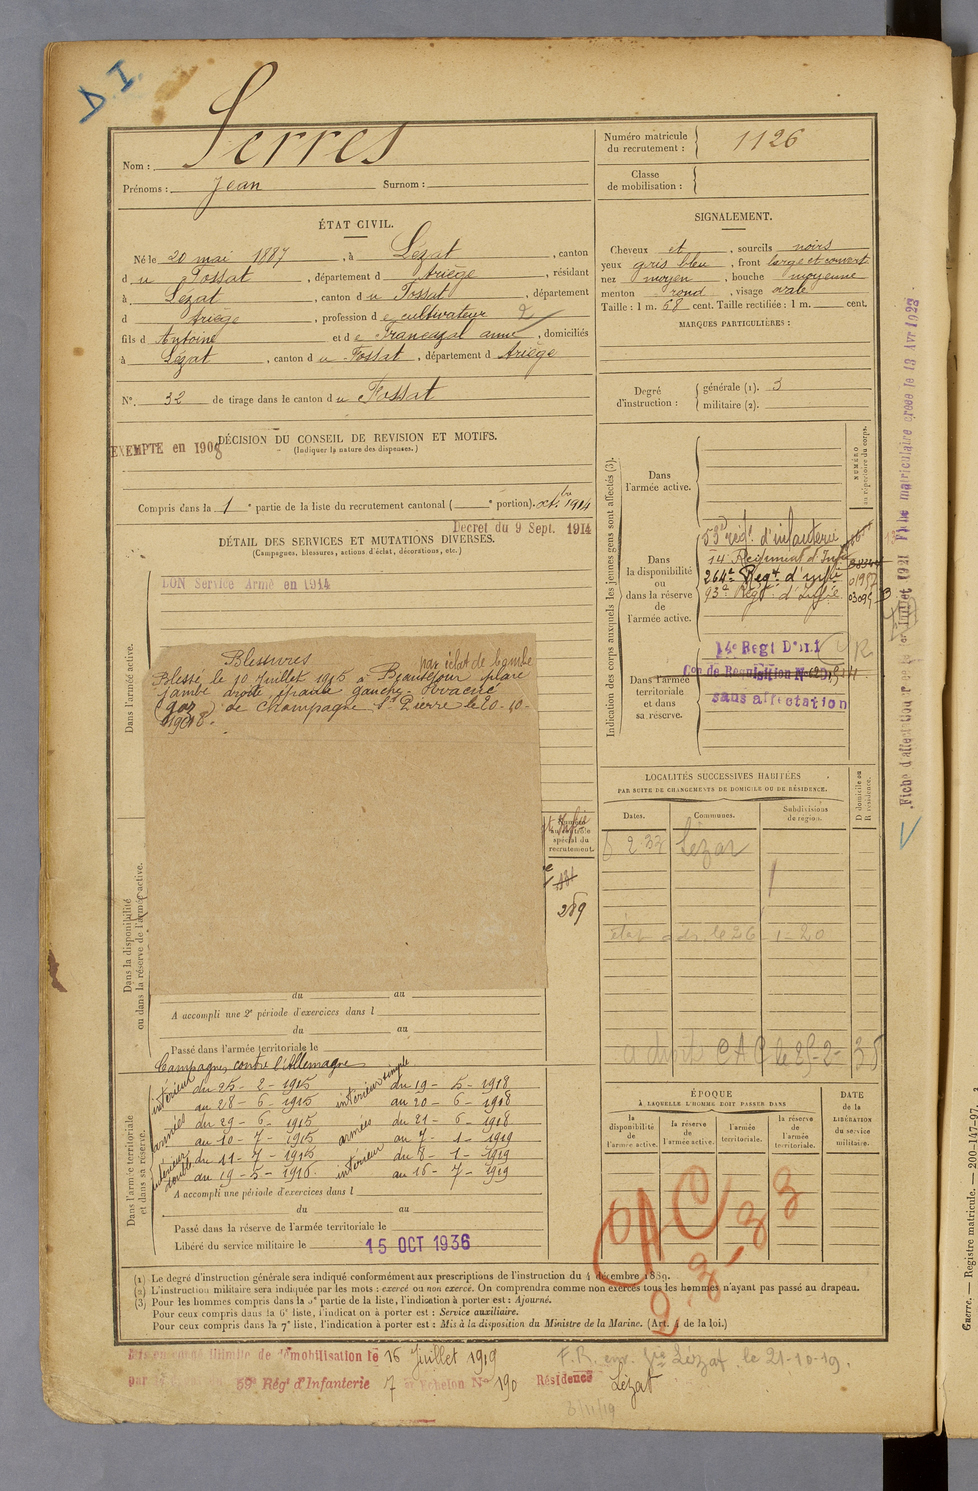 D. I.
Nom : Serres
Prénoms : Jean Surnom :
Numéro matricule du recrutement : 1126
Classe de mobilisation :
ÉTAT CIVIL.
Né le 20 mai 1887, à Lézat, canton
du Fossat, département d Ariège, résidant
à Lézat, canton du Fossat, département
d Ariège, profession de cultivateur
fils d Antoine et de Francazal anne, domiciliés
à Lézat, canton du Fossat, département d Ariège
N°. 32 de tirage dans le canton du Fossat
SIGNALEMENT.
Cheveux et, sourcils noirs
yeux gris bleu, front large et couvert
nez moyen, bouche moyenne
menton rond, visage ovale
Taille : 1 m. 58 cent. Taille rectifiée : 1 m. cent.
MARQUES PARTICULIÈRES :
Degré d'instruction : générale (1). 3
militaire (2).
EXEMPTÉ en 1908
DÉCISION DU CONSEIL DE REVISION ET MOTIFS.
(Indiquer la nature des dispenses.)
Compris dans la 1e partie de la liste du recrutement cantonal ( e portion). octbre 1914
Décret du 9 Sept. 1914
DÉTAIL DES SERVICES ET MUTATIONS DIVERSES.
(Campagnes, blessures, actions d'éclat, décorations, etc.)
BON Service Armé en 1914
Dans l'armée active.
Blessures
Blessé le 10 Juillet 1915 à Beauséjour plaie par éclat de bombe
jambe droite
(gaz) de Champagne St Pierre le 20-10-
1918.
Dans la disponibilité
ou dans la réserve de l'armée active.
spécial du
recrutement.
289
du au
A accompli une 2e période d'exercices dans l
du au
Passé dans l'armée territoriale le
Campagnes contre l'Allemagne
intérieur du 25 - 2 - 1915 intérieur simple du 19 - 5 - 1918
au 28 - 6 - 1915 au 20 - 6 - 1918
armées du 29 - 6 - 1915 armées du 21 - 6 - 1918
au 10 - 7 - 1915 au 7 - 1 - 1919
intérieur double du 11 - 7 - 1915 intérieur du 8 - 1 - 1919
au 19 - 5 - 1916 au 16 - 7 - 1919
Dans l'armée territoriale
et dans sa réserve.
A accompli une période d'exercices dans l
du au
Passé dans la réserve de l'armée territoriale le
Libéré du service militaire le 15 OCT 1936
Indication des corps auxquels les jeunes gens sont affectés (3).
NUMÉRO
au répertoire du corps.
Dans l'armée active.
Dans la disponibilité ou dans la réserve de l'armée active.
53e régt. d'infanterie
14e Régiment d'Infie
264e Regt. d'infie 01957
93e Régt d'Infie 03095
Dans l'armée territoriale et dans sa réserve.
14e Regt D'Inf
Con de Requisition
sans affectation
LOCALITÉS SUCCESSIVES HABITÉES
PAR SUITE DE CHANGEMENTS DE DOMICILE OU DE RÉSIDENCE.
Dates. Communes. Subdivisions de région. D domicile ou R résidence.
6 2 33 Lézat
le 26 - 1 - 20
CAC le 25-2-35
ÉPOQUE
À LAQUELLE L'HOMME DOIT PASSER DANS
la disponibilité de l'armée active. la réserve de l'armée active. l'armée territoriale. la réserve de l'armée territoriale.
DATE de la LIBÉRATION du service militaire.
(1) Le degré d'instruction générale sera indiqué conformément aux prescriptions de l'instruction du 4 décembre 1889.
(2) L'instruction militaire sera indiquée par les mots : exercé ou non exercé. On comprendra comme non exercés tous les hommes n'ayant pas passé au drapeau.
(3) Pour les hommes compris dans la 5e partie de la liste, l'indication à porter est : Ajourné.
Pour ceux compris dans la 6e liste, l'indication à porter est : Service auxiliaire.
Pour ceux compris dans la 7e liste, l'indication à porter est : Mis à la disposition du Ministre de la Marine. (Art. 4 de la loi.)
Mis en congé illimité de démobilisation le 16 Juillet 1919
59e Régt d'Infanterie 7e Echelon No 190 Résidence Lézat
F.R. env. Gie Lézat le 21-10-19.
3/11/19
Fiche matriculaire créée le 13 Avr 1928
Guerre. — Registre matricule. — 200-147-97.